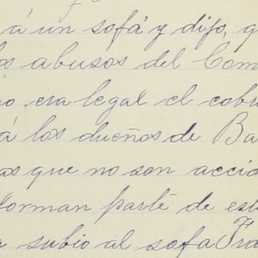 á un sofá y dijo, q
os abusos del Com
o era legal el cobr
á los dueños de Ba
as que no son accio
forman parte de est
a subio al sofa Fra